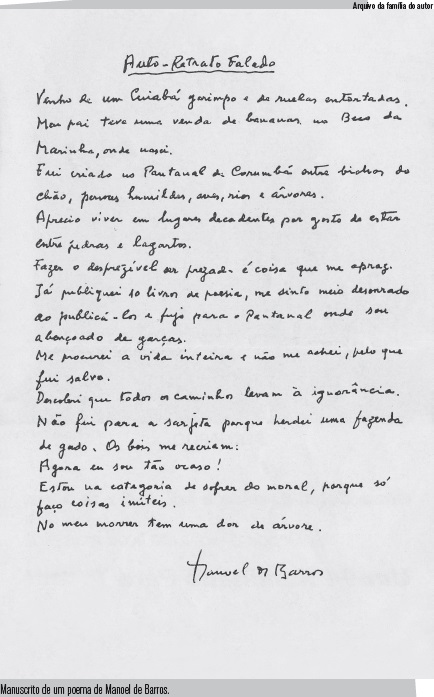 Arquivo da família do autor
Auto-Retrato Falado
Venho de um Cuiabá garimpo e de ruelas entortadas.
Meu pai teve uma venda de bananas no Beco da
Marinha, onde nasci.
Fui criado no Pantanal de Corumbá entre bichos do
chão, pessoas humildes, aves, rios e árvores.
Aprecio viver em lugares decadentes por gosto de estar
entre pedras e lagartos.
Fazer o desprezível ser prezado é coisa que me apraz.
Já publiquei 10 livros de poesia, me sinto meio desonrado
ao publicá-los e fujo para o Pantanal onde sou
abençoado de garças.
Me procurei a vida inteira e não me achei, pelo que
fui salvo.
Descobri que todos os caminhos levam à ignorância.
Não fui para a sarjeta porque herdei uma fazenda
de gado. Os bois me recriam.
Agora eu sou tão ocaso!
Estou na categoria de sofrer do moral, porque só
faço coisas inúteis.
No meu morrer tem uma dor de árvore.
Manoel de Barros
Manuscrito de um poema de Manoel de Barros.